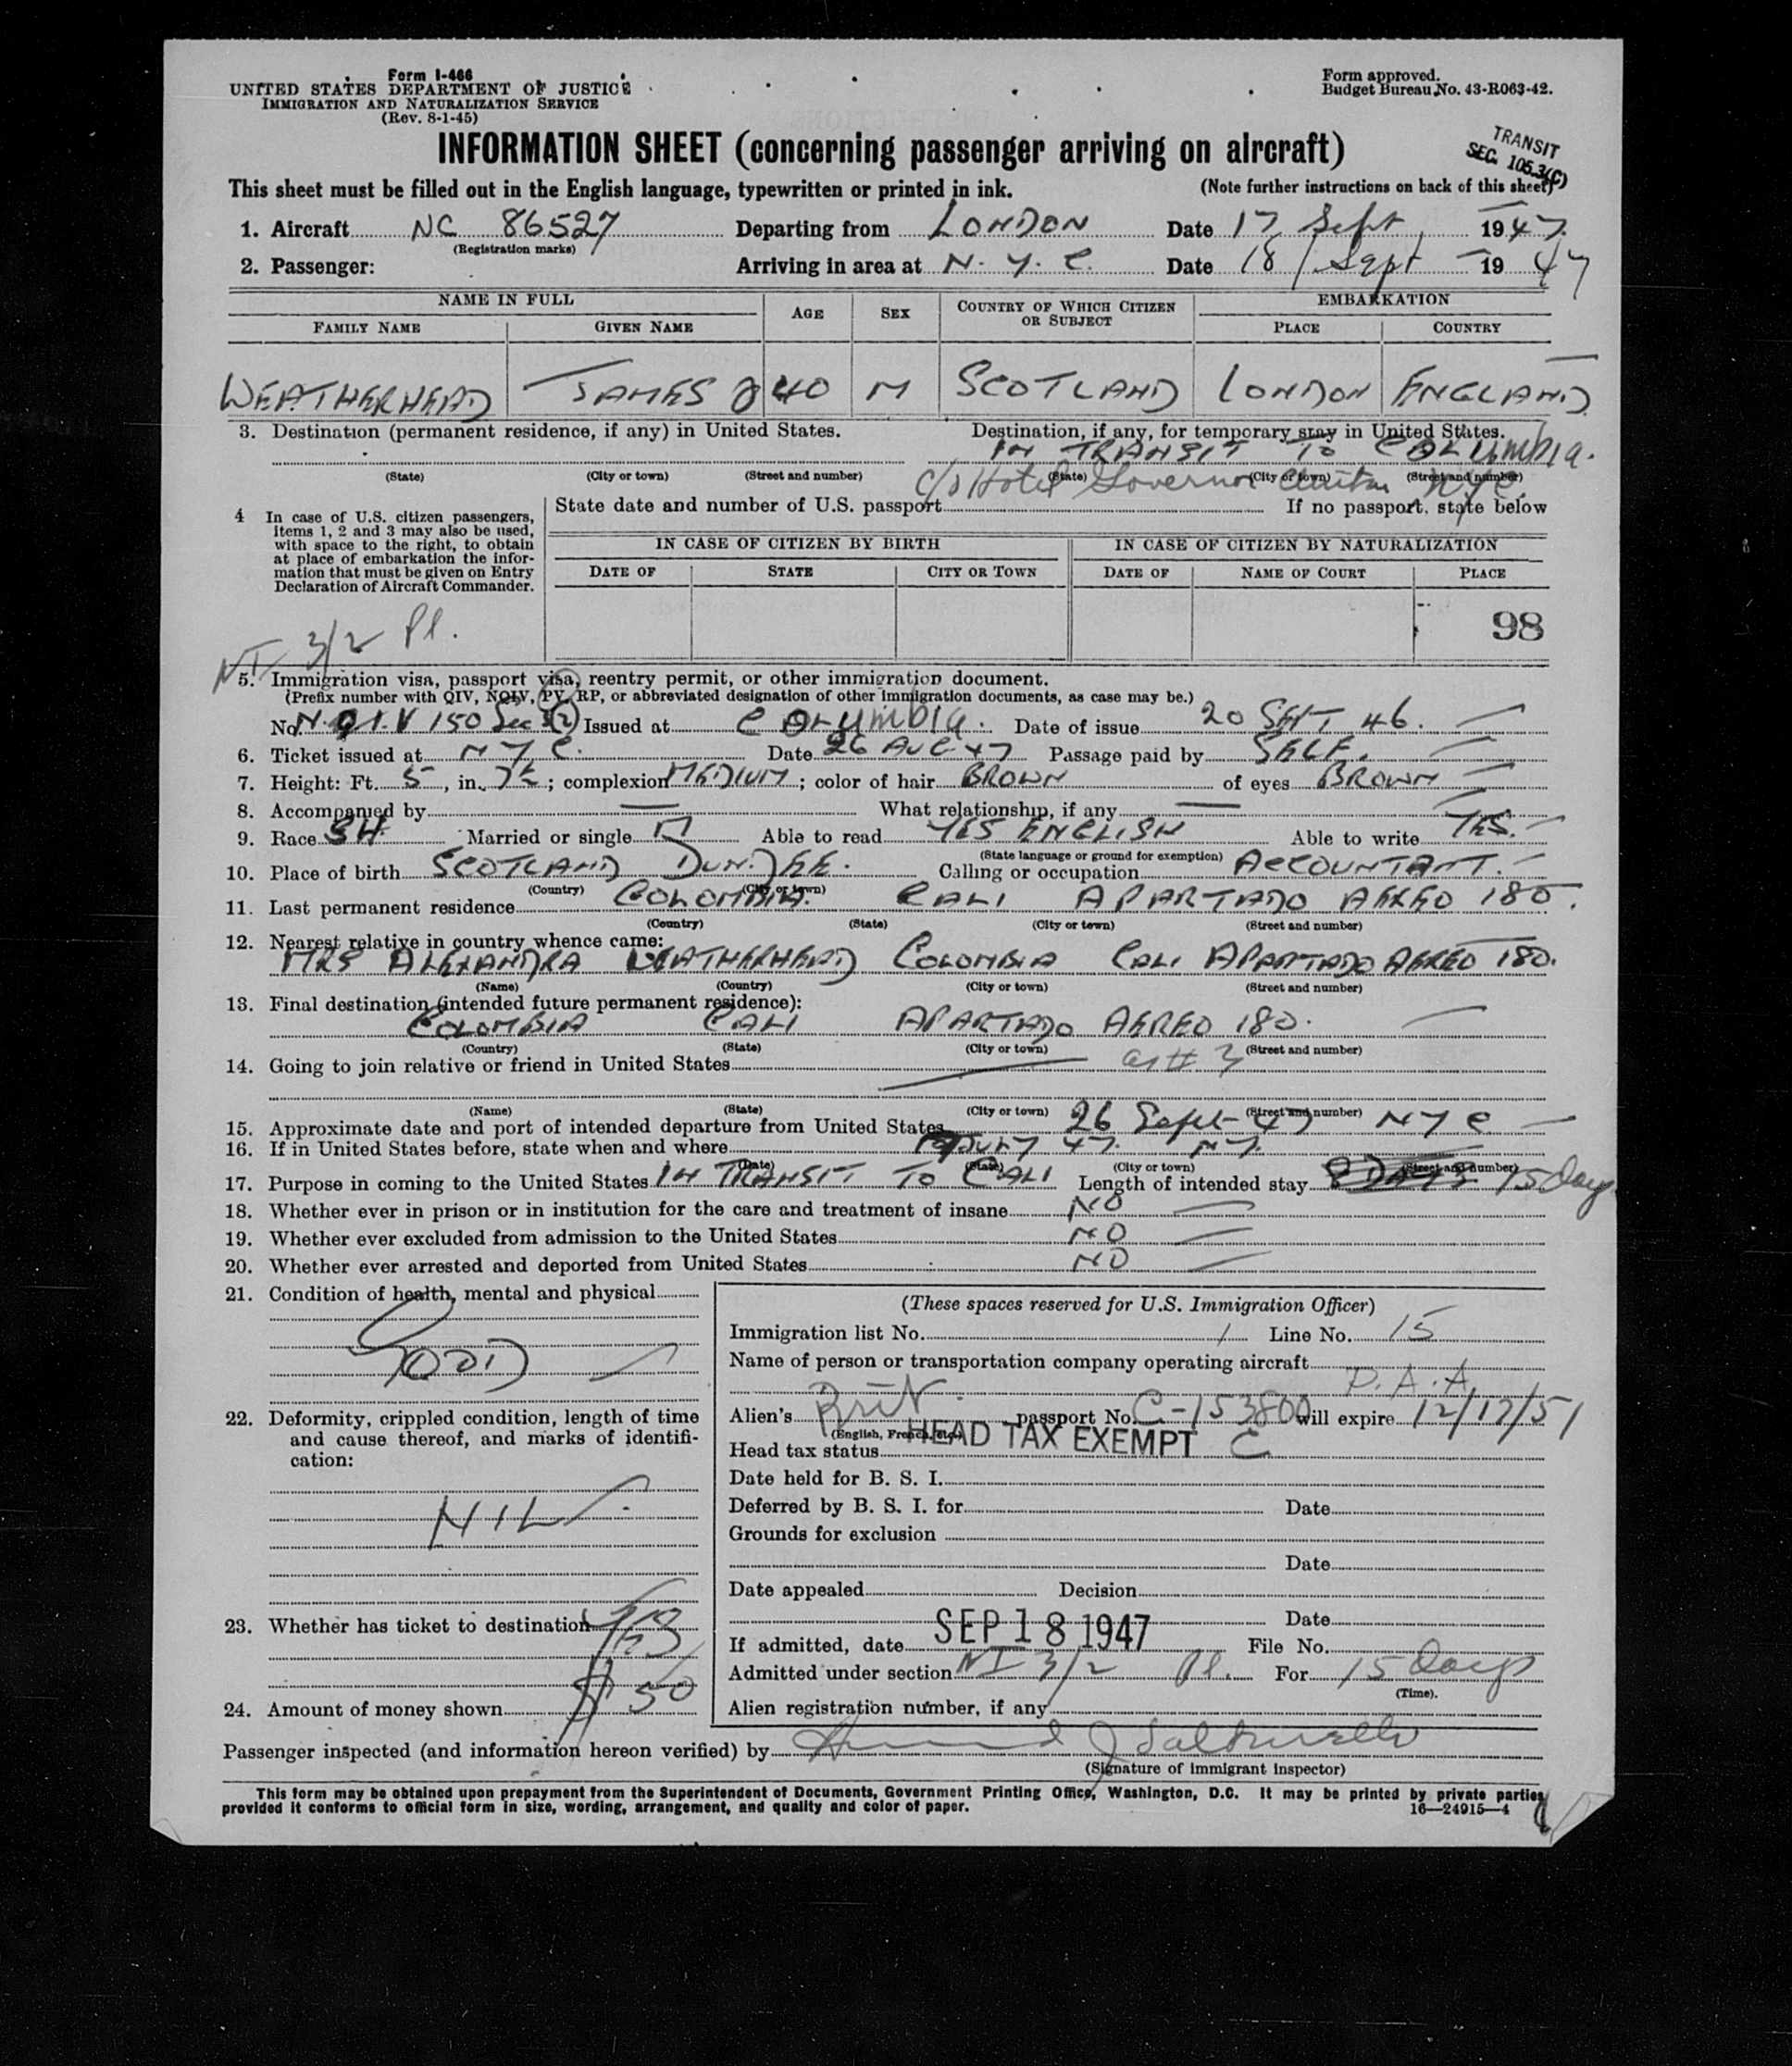 Form I-466
UNITED STATES DEPARTMENT OF JUSTICE
IMMIGRATION AND NATURALIZATION SERVICE
(Rev. 8-1-45)
Form approved.
Budget Bureau No. 43-R063-42.
INFORMATION SHEET (concerning passenger arriving on aircraft)
TRANSIT
SEC. 105.3(C)
This sheet must be filled out in the English language, typewritten or printed in ink. (Note further instructions on back of this sheet)
1. Aircraft NC 86527 Departing from LONDON Date 17 Sept 1947
(Registration marks)
2. Passenger: Arriving in area at N.Y.C. Date 18 Sept 1947
NAME IN FULL AGE SEX COUNTRY OF WHICH CITIZEN OR SUBJECT EMBARKATION
FAMILY NAME GIVEN NAME PLACE COUNTRY
WEATHERHEAD JAMES 40 M SCOTLAND LONDON ENGLAND
3. Destination (permanent residence, if any) in United States. Destination, if any, for temporary stay in United States.
IN TRANSIT TO COLUmbia.
(State) (City or town) (Street and number) (State) (City or town) (Street and number)
c/o Hotel Governor Clinton NYC.
4 In case of U.S. citizen passengers, items 1, 2 and 3 may also be used, with space to the right, to obtain at place of embarkation the information that must be given on Entry Declaration of Aircraft Commander.
State date and number of U.S. passport If no passport, state below
IN CASE OF CITIZEN BY BIRTH IN CASE OF CITIZEN BY NATURALIZATION
DATE OF STATE CITY OR TOWN DATE OF NAME OF COURT PLACE
98
NI 3/2 Pl.
5. Immigration visa, passport visa, reentry permit, or other immigration document.
(Prefix number with QIV, NQIV, PV, RP, or abbreviated designation of other immigration documents, as case may be.)
No. N.Q.I.V 150 Sec 3(2) Issued at COLUmbia. Date of issue 20 SEPT 46.
6. Ticket issued at NYC. Date 26 AUG 47 Passage paid by SELF.
7. Height: Ft. 5, in. 7½; complexion MEDIUM; color of hair BROWN of eyes BROWN
8. Accompanied by — What relationship, if any —
9. Race SH Married or single M Able to read YES ENGLISH Able to write YES.
(State language or ground for exemption)
10. Place of birth SCOTLAND DUNDEE. Calling or occupation ACCOUNTANT.
(Country) (City or town)
11. Last permanent residence COLOMBIA. CALI APARTADO AEREO 180.
(Country) (State) (City or town) (Street and number)
12. Nearest relative in country whence came:
MRS ALEXANDRA WEATHERHEAD COLOMBIA CALI APARTADO AEREO 180.
(Name) (Country) (City or town) (Street and number)
13. Final destination (intended future permanent residence):
COLOMBIA CALI APARTADO AEREO 180.
(Country) (State) (City or town) (Street and number)
14. Going to join relative or friend in United States as # 3
(Name) (State) (City or town) (Street and number)
15. Approximate date and port of intended departure from United States 26 Sept 47 NYC
16. If in United States before, state when and where JULY 47. NY.
(Date) (State) (City or town) (Street and number)
17. Purpose in coming to the United States IN TRANSIT TO CALI Length of intended stay 8 DAYS 15 days
18. Whether ever in prison or in institution for the care and treatment of insane NO
19. Whether ever excluded from admission to the United States NO
20. Whether ever arrested and deported from United States NO
21. Condition of health, mental and physical
GOOD
22. Deformity, crippled condition, length of time and cause thereof, and marks of identification:
NIL
23. Whether has ticket to destination YES
24. Amount of money shown $ 50
(These spaces reserved for U.S. Immigration Officer)
Immigration list No. 1 Line No. 15
Name of person or transportation company operating aircraft
P.A.A
Alien's Brit. passport No. C-153800 will expire 12/17/51
(English, French, etc.)
Head tax status HEAD TAX EXEMPT C
Date held for B. S. I.
Deferred by B. S. I. for Date
Grounds for exclusion
Date
Date appealed Decision
Date
If admitted, date SEP 18 1947 File No.
Admitted under section NI 3/2 Pl. For 15 days
(Time).
Alien registration number, if any
Passenger inspected (and information hereon verified) by
(Signature of Immigrant Inspector)
This form may be obtained upon prepayment from the Superintendent of Documents, Government Printing Office, Washington, D.C. It may be printed by private parties
provided it conforms to official form in size, wording, arrangement, and quality and color of paper. 16—24915—4